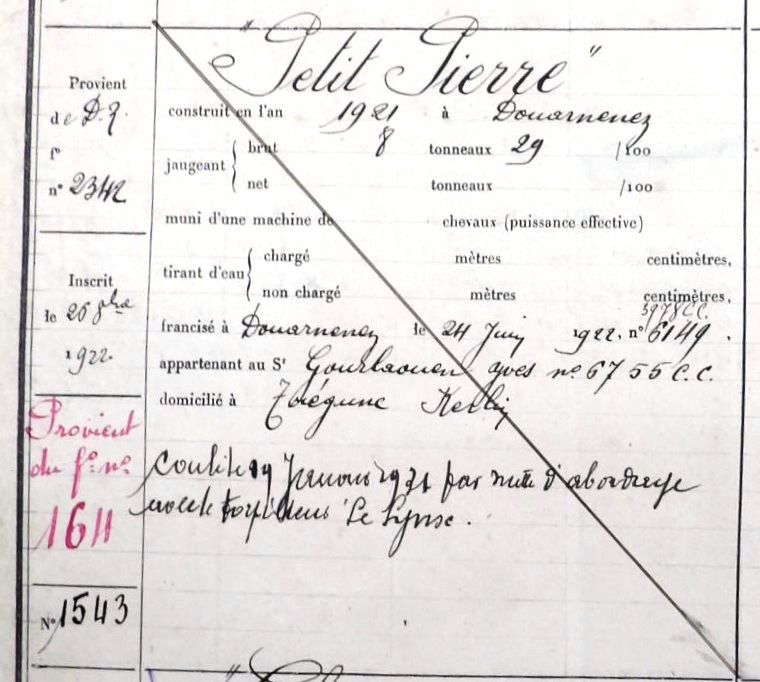 "Petit Pierre"
Provient
de D.Z.
f°
n° 2342
construit en l'an 1921 à Douarnenez
jaugeant { brut 8 tonneaux 29 /100
net tonneaux /100
muni d'une machine de chevaux (puissance effective)
Inscrit
le 26 8bre
1922.
tirant d'eau { chargé mètres centimètres,
non chargé mètres centimètres,
3978 CC.
francisé à Douarnenez le 24 Juin 1922, n° 6149.
appartenant au Sr Gourlaouen Yves n° 6755 C.C.
domicilié à Trégunc
Provient
du f° n°
1611
Coulé le 19 Janvier 1931 par suite d'abordage
avec le torpilleur "Le Lynx".
N° 1543